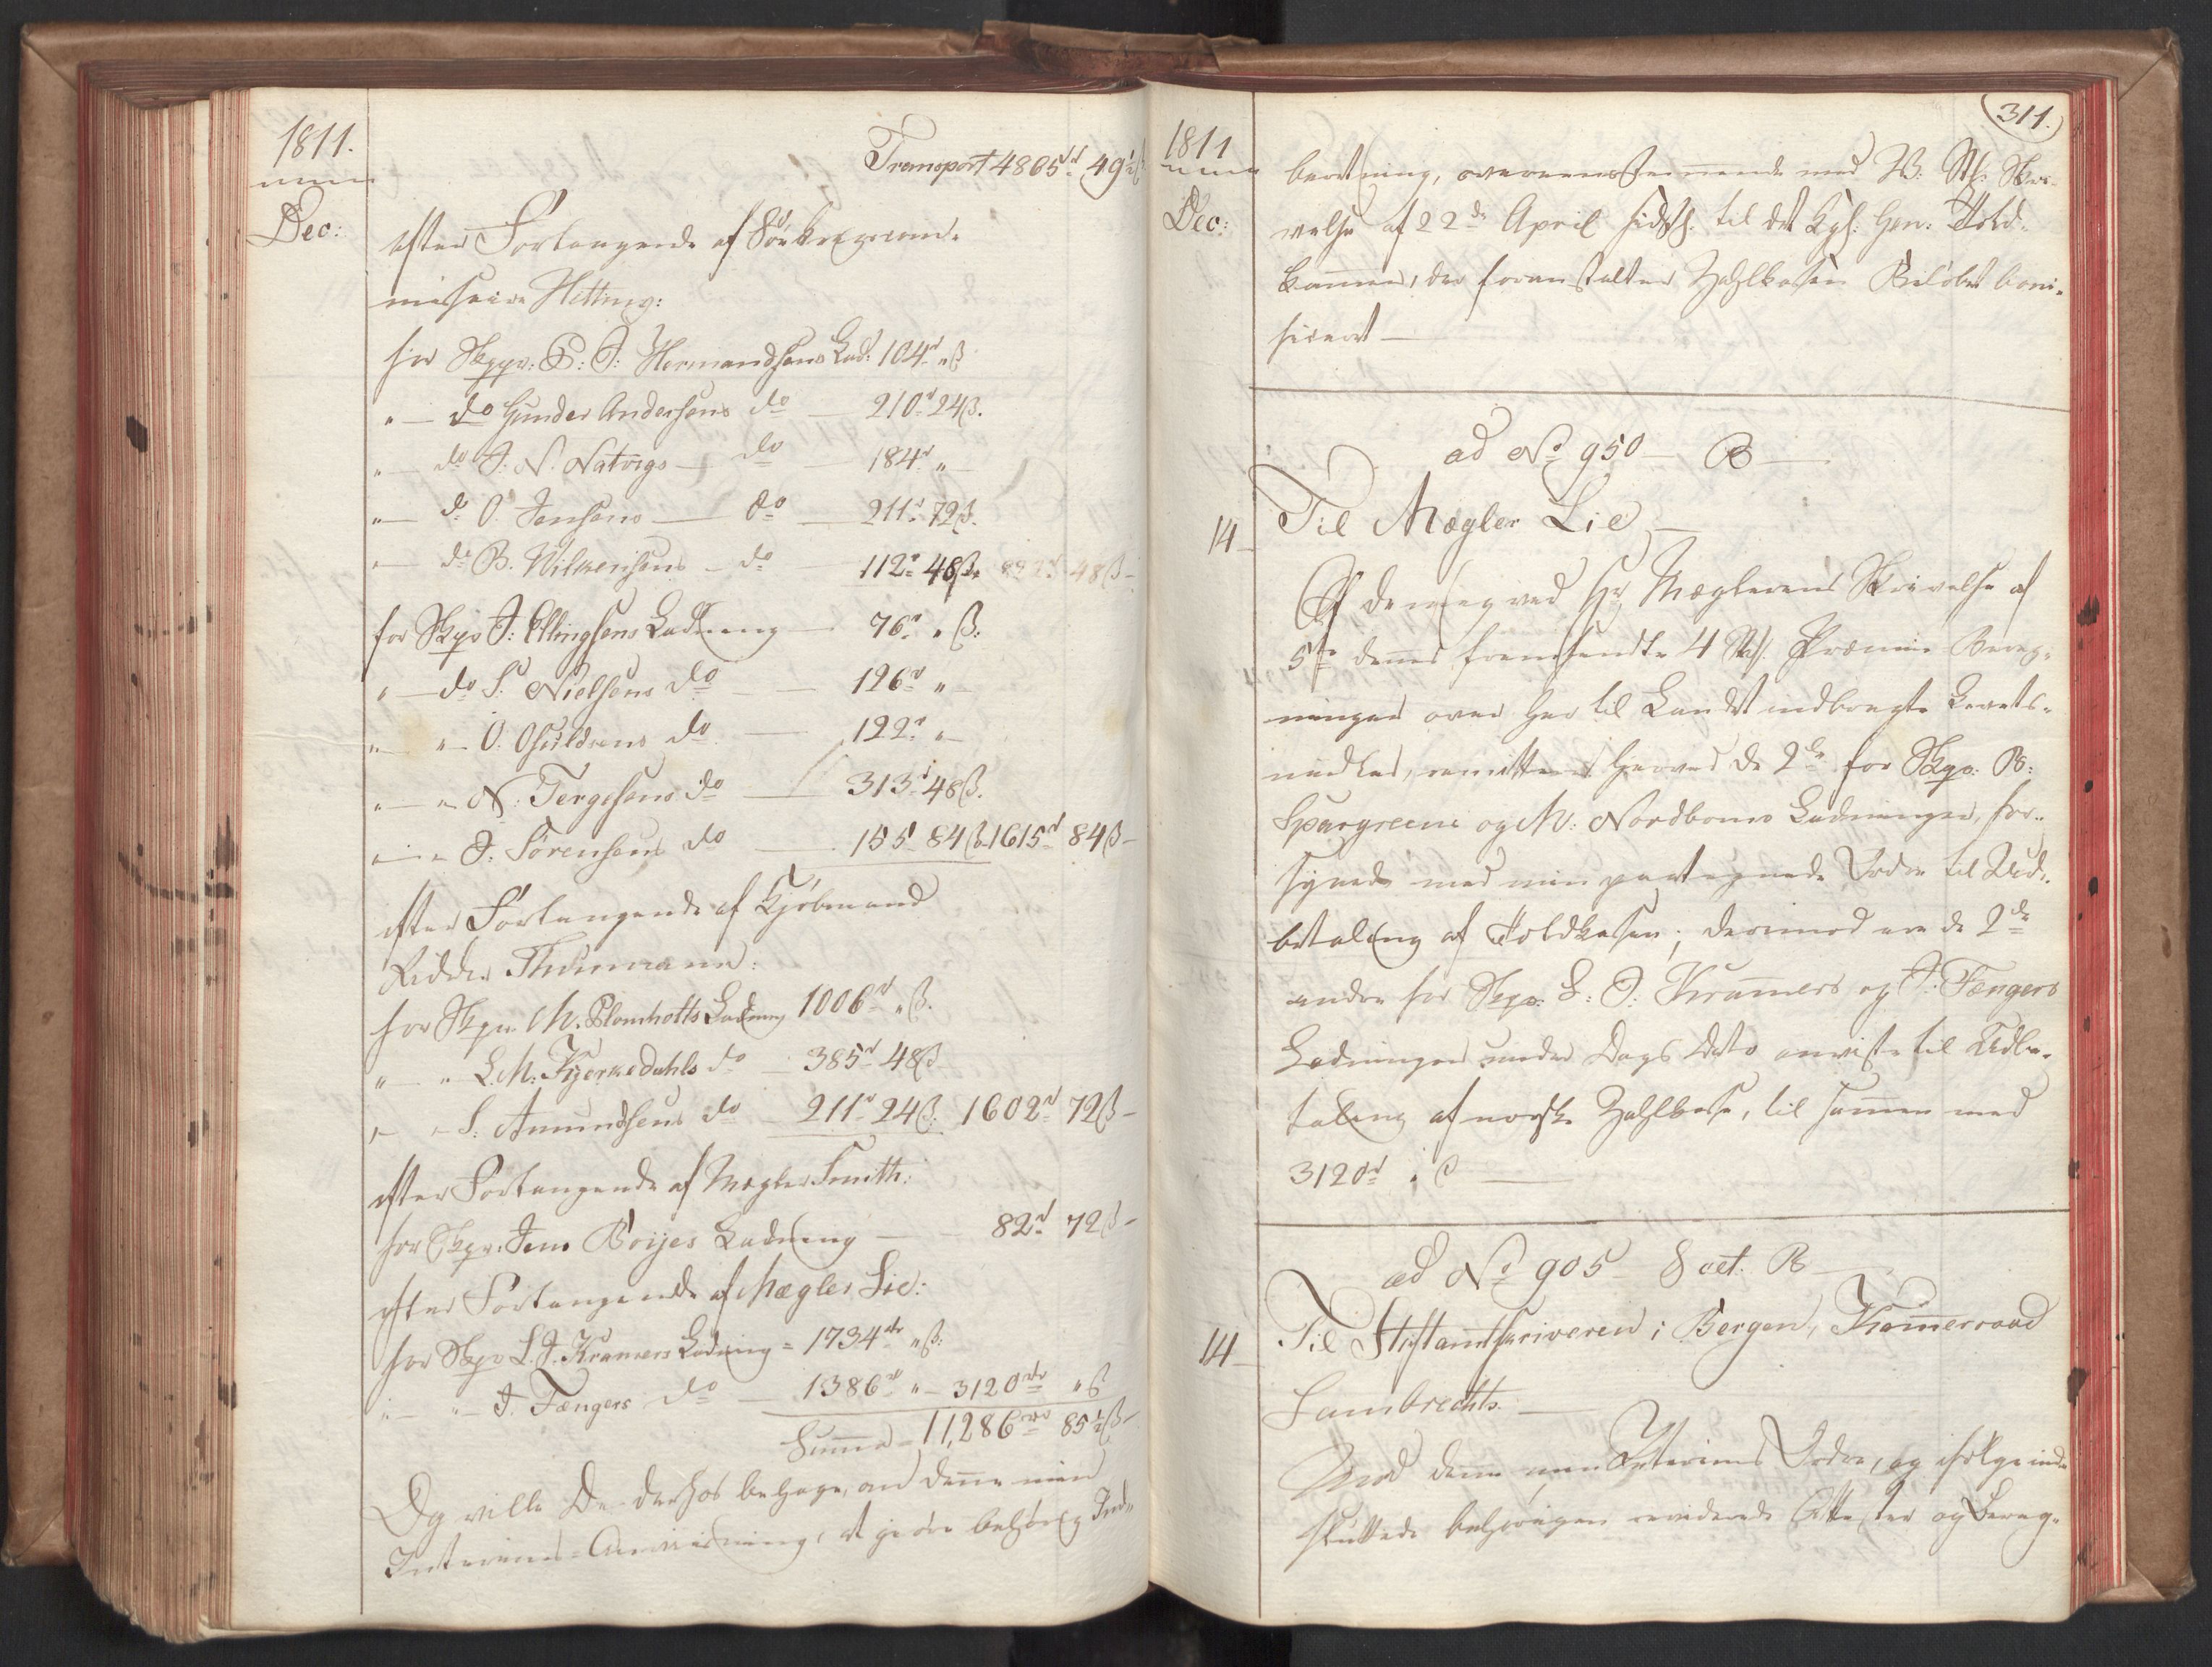 1811.
Dec:
Transport 4865rd 49½ß
efter Forlangende af Sörkrigscom-
missair Hetting:
for Skppr: P: J: Hermandsens Lad: 104rd "ß
" — do Gunder Andersens do — 210rd 24ß.
" — do J: N. Natvigs — do — 184rd " —
" — do O. Jensens — do — 211rd 72ß.
" — do B. Wilkensens — do 112rd 48ß. 822rd 48ß —
for Skpr J: Ellingsens Ladning — 76rd " ß:
" — do S. Nielsens do — 126rd " —
" — " — O. Osuldsens do — 122rd " —
" — " — N: Tergesens do — 313rd 48ß.
" — " — J. Sörensens do — 155rd 84ß 1615rd 84ß —
efter Forlangende af Kjöbmand
Ridder Thurmann:
for Skpr. M. Ladning 1006rd " ß.
" — " L. M: Kjerkedahls do — 385rd 48ß
" — " S. Amundsens do — 211rd 24ß. 1602rd 72ß —
efter Forlangende af Mægler Smith:
for Skpr. Jens Boijes Ladning — 82rd 72ß —
efter Forlangende af Mægler Lie:
for Skpr L. J. Kramers Ladning = 1734rdr " ß:
" — " — J. Fængers do — 1386rd " — 3120rdr " ß
Summa — 11,286rdr 85½ß —
Og ville De derhos behage, om denne min
Interims-Anviisning, at giöre behörig Ind-
311.
1811
Dec:
beretning, overeensstemmende med W: St: Skri-
velse af 22de April sidstl: til det Kgl: Gen: Told-
kammer, der foranstalter Zahlkassen Belöbet boni-
ficeret —
ad No 950 — B —
14 — Til Mægler Lie —
Af de mig ved Hr Mæglerens Skrivelse af
5te dennes fremsendte 4 Stk. Præmie Bereg-
ninger over her til Landet indbragte Levnets-
midler, remitteres herved de 2de for Skpr: B:
Spargreens og M: Nordboms Ladninger, for-
synede med min paategnede Ordre til Ud-
betaling af Toldkassen; derimod ere de 2de
andre for Skpr. L: J: Kramers og J: Fængers
Ladninger under Dags Dato anviiste til Udbe-
taling af norske Zahlkasse, til sammen med
3120rd " ß —
ad No 905 — 8 oct. B —
14 — Til Stiftamtskriveren i Bergen, Kammerraad
Lambrechts. —
Mod denne min Interims Ordre, og ifölge inde-
sluttede behörigen reviderede Attester og Bereg-